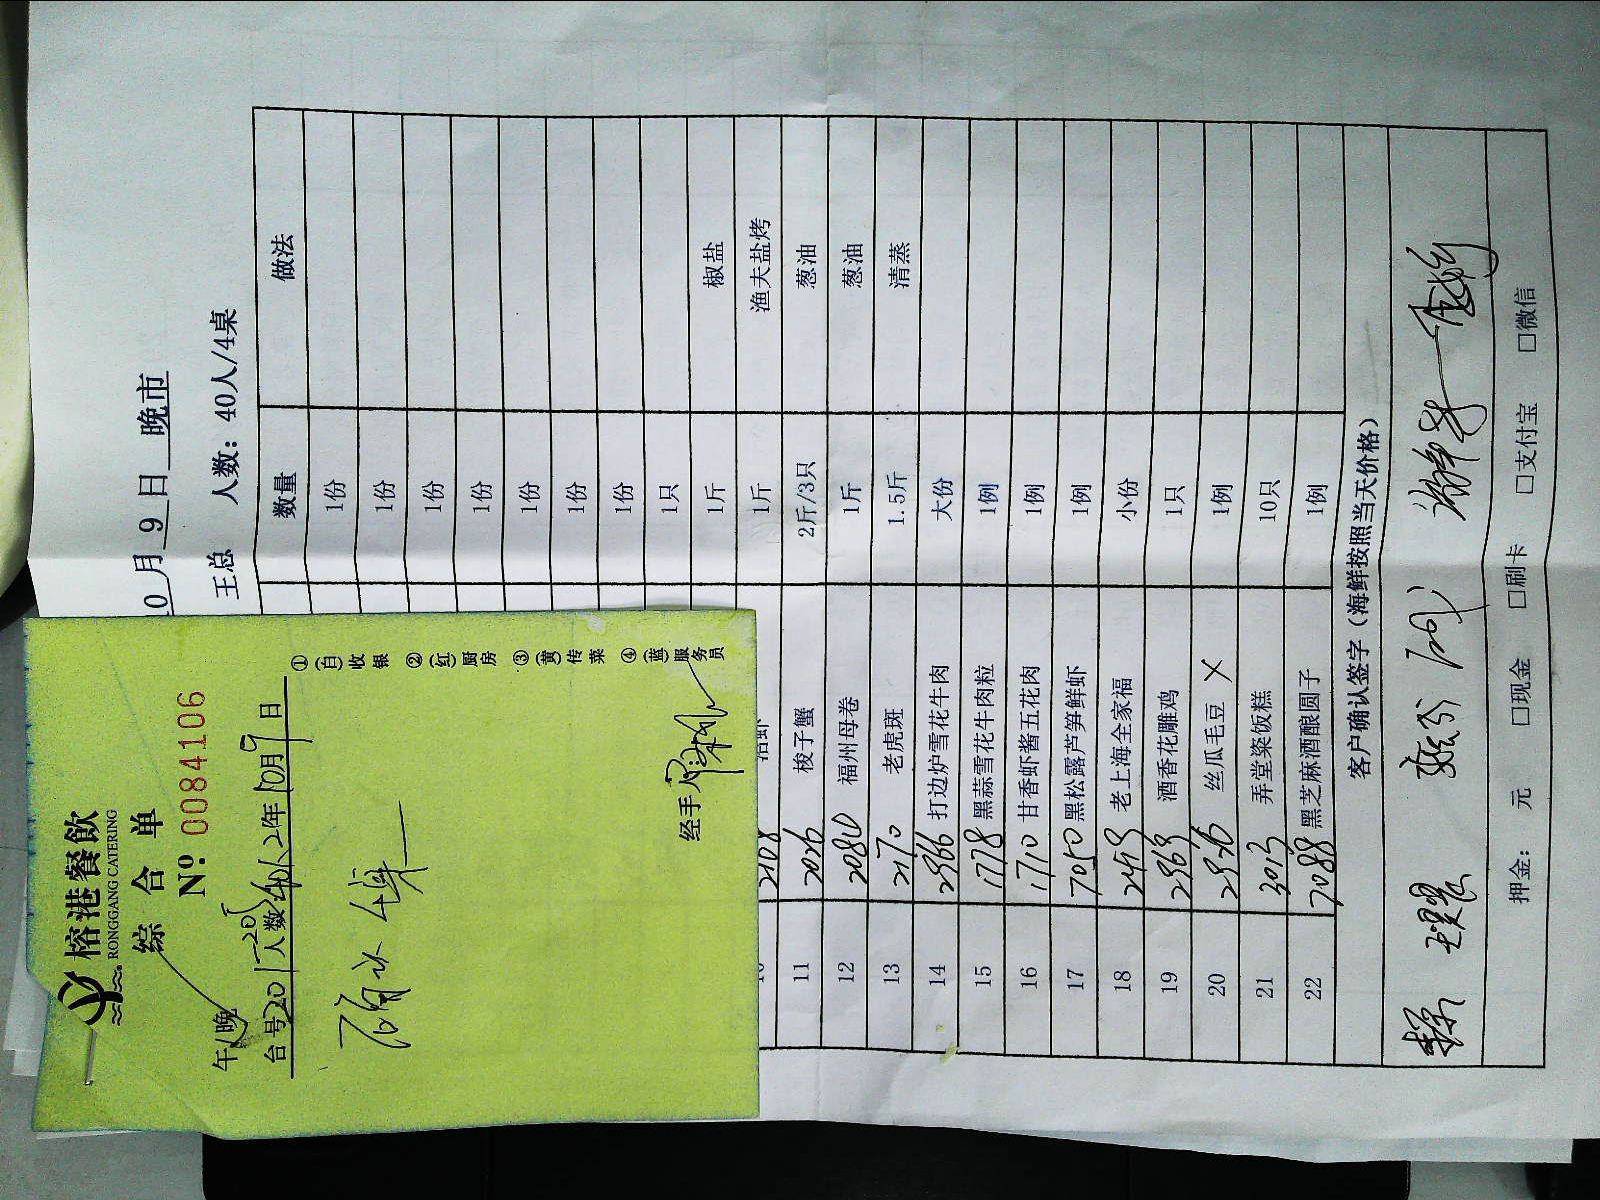 榕港餐飲
RONGGANG CATERING
综合单
Nº 0084106
午/晚
台号 201-205 人数 年10月9日
①(白)收银
②(红)厨房
③(黄)传菜
④(蓝)服务员
经手人
10月 9 日 晚市
王总 人数：40人/4桌
数量 做法
1份
1份
1份
1份
1份
1份
1份
1只
1斤 椒盐
10 2108 活虾 1斤 渔夫盐烤
11 2026 梭子蟹 2斤/3只 葱油
12 2080 福州母卷 1斤 葱油
13 2170 老虎斑 1.5斤 清蒸
14 2966 打边炉雪花牛肉 大份
15 1778 黑蒜雪花牛肉粒 1例
16 1710 甘香虾酱五花肉 1例
17 7050 黑松露芦笋鲜虾 1例
18 老上海全家福 小份
19 2963 酒香花雕鸡 1只
20 2976 丝瓜毛豆 X 1例
21 3013 弄堂粢饭糕 10只
22 7088 黑芝麻酒酿圆子 1例
客户确认签字（海鲜按照当天价格）
押金： 元 □现金 □刷卡 □支付宝 □微信